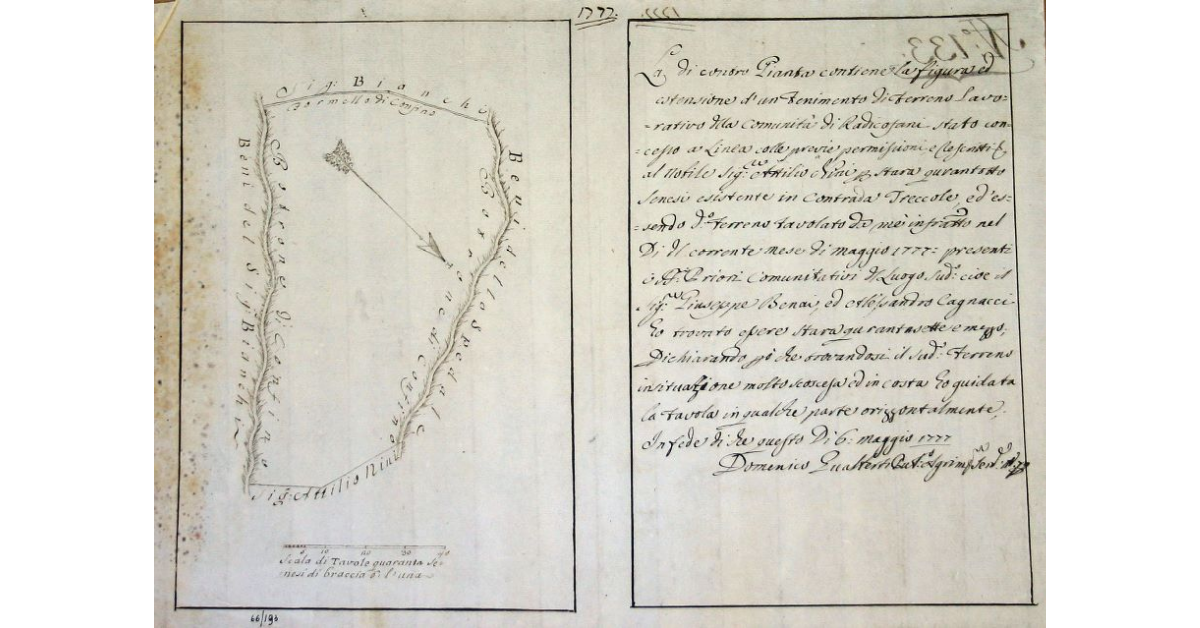 1777.
Sig: Bianchi
Bormello di Confino
Beni del Sig: Bianchi
Botrone di Confino
Beni dello Spedale
Botrone di Confino
Sig: Attilio Nini
0 10 20 30 40
Scala di Tavole quaranta Se=
nesi di braccia 6: l'una
66/193
N.º 133.
La di contro Pianta contiene la figura ed
estensione d'un Tenimento di Terreno Lavo=
=rativo della Comunità di Radicofani stato con=
=cesso a Linea colle previe permissioni e Rescritti
al Nobile Sig: Attilio Nini p stara quarantotto
Senesi esistente in contrada Treccole, ed es=
=sendo d.º Terreno tavolato da mè infratto nel
Di del corrente mese di maggio 1777: presenti
i Priori Comunitativi del Luogo Sud.º cioè il
Sig: Giuseppe Benai, ed Alessandro Cagnacci
ho trovato essere stara quarantasette e mezzo,
Dichiarando p.ò che trovandosi il sud.º Terreno
in situazione molto scoscesa ed in costa ho guidata
la tavola in qualche parte orizzontalmente.
In fede di che questo Di 6: maggio 1777
Domenico Gualterti Agrim